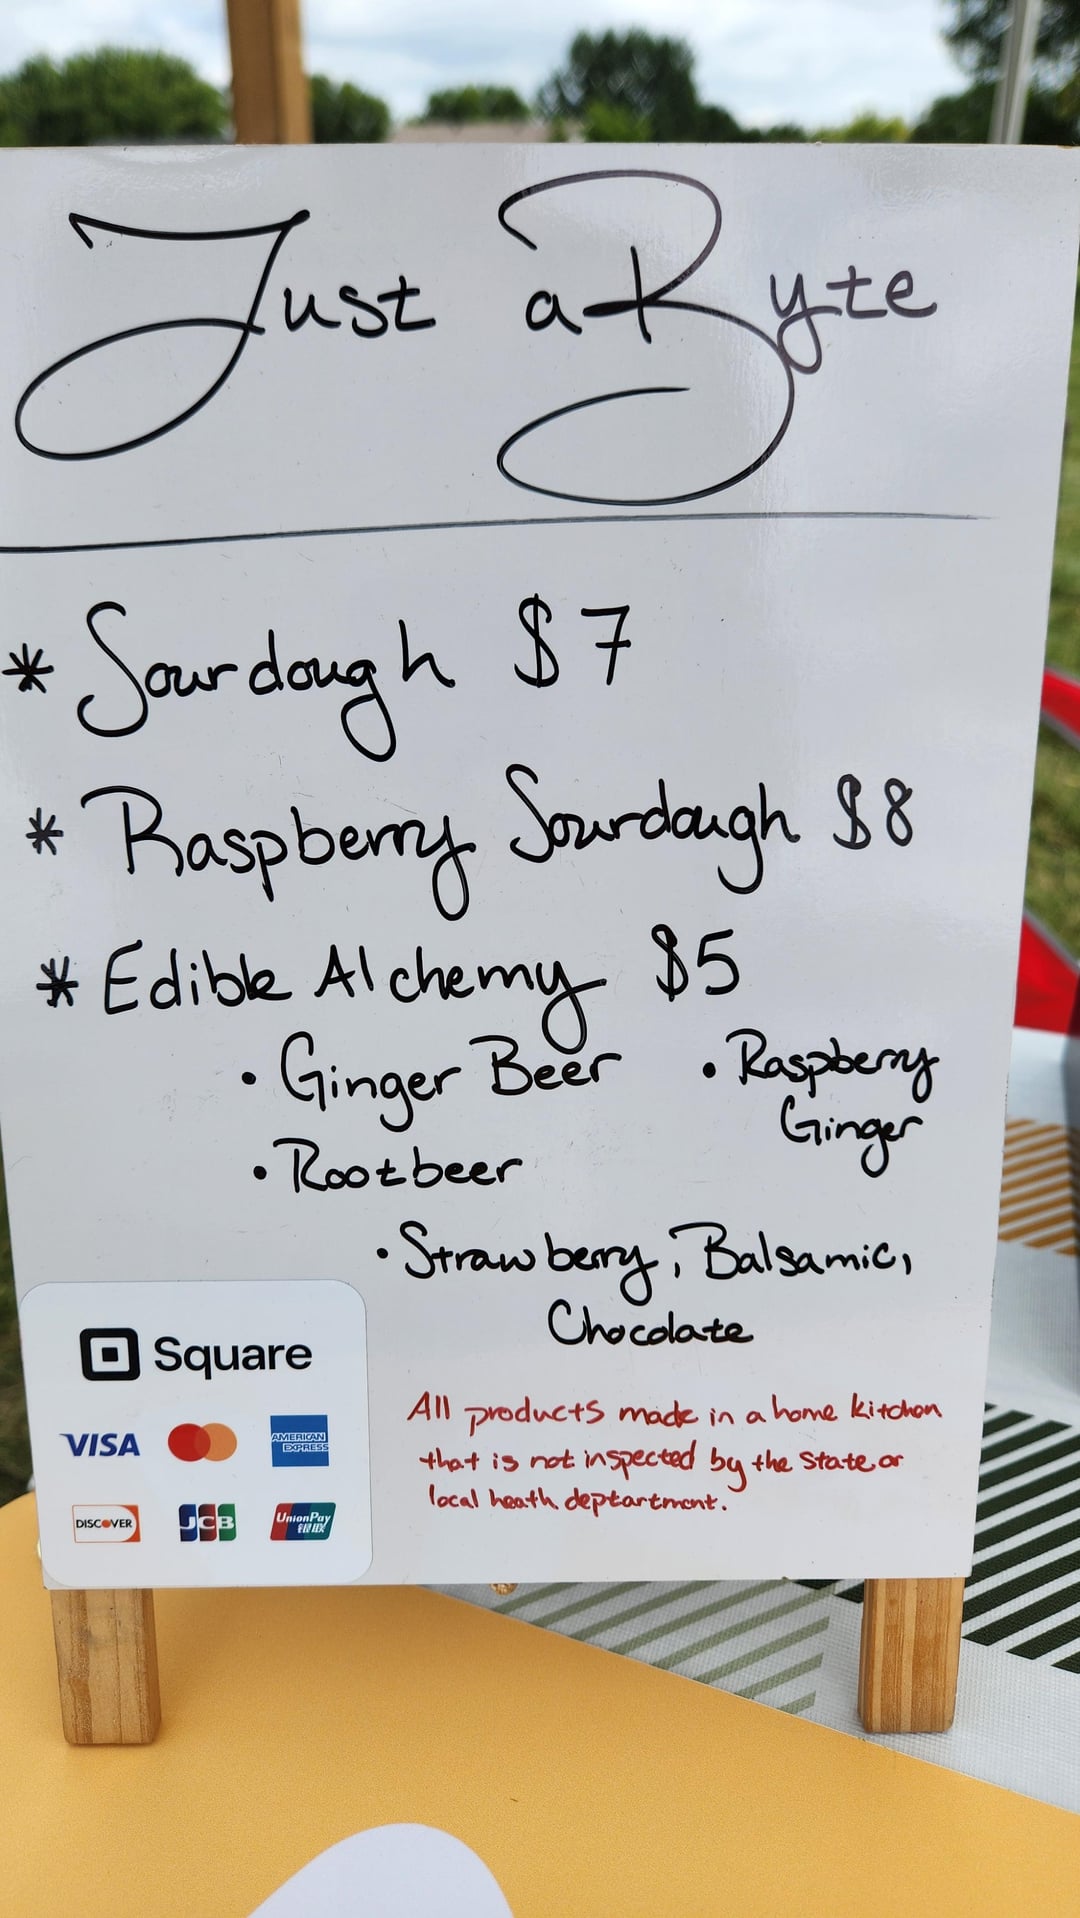 Just a Byte
* Sourdough $7
* Raspberry Sourdough $8
* Edible Alchemy $5
• Ginger Beer
• Raspberry
Ginger
• Rootbeer
• Strawberry, Balsamic,
Chocolate
Square
VISA
AMERICAN
EXPRESS
DISCOVER
JCB
UnionPay
银联
All products made in a home kitchen
that is not inspected by the state or
local heath deptartment.